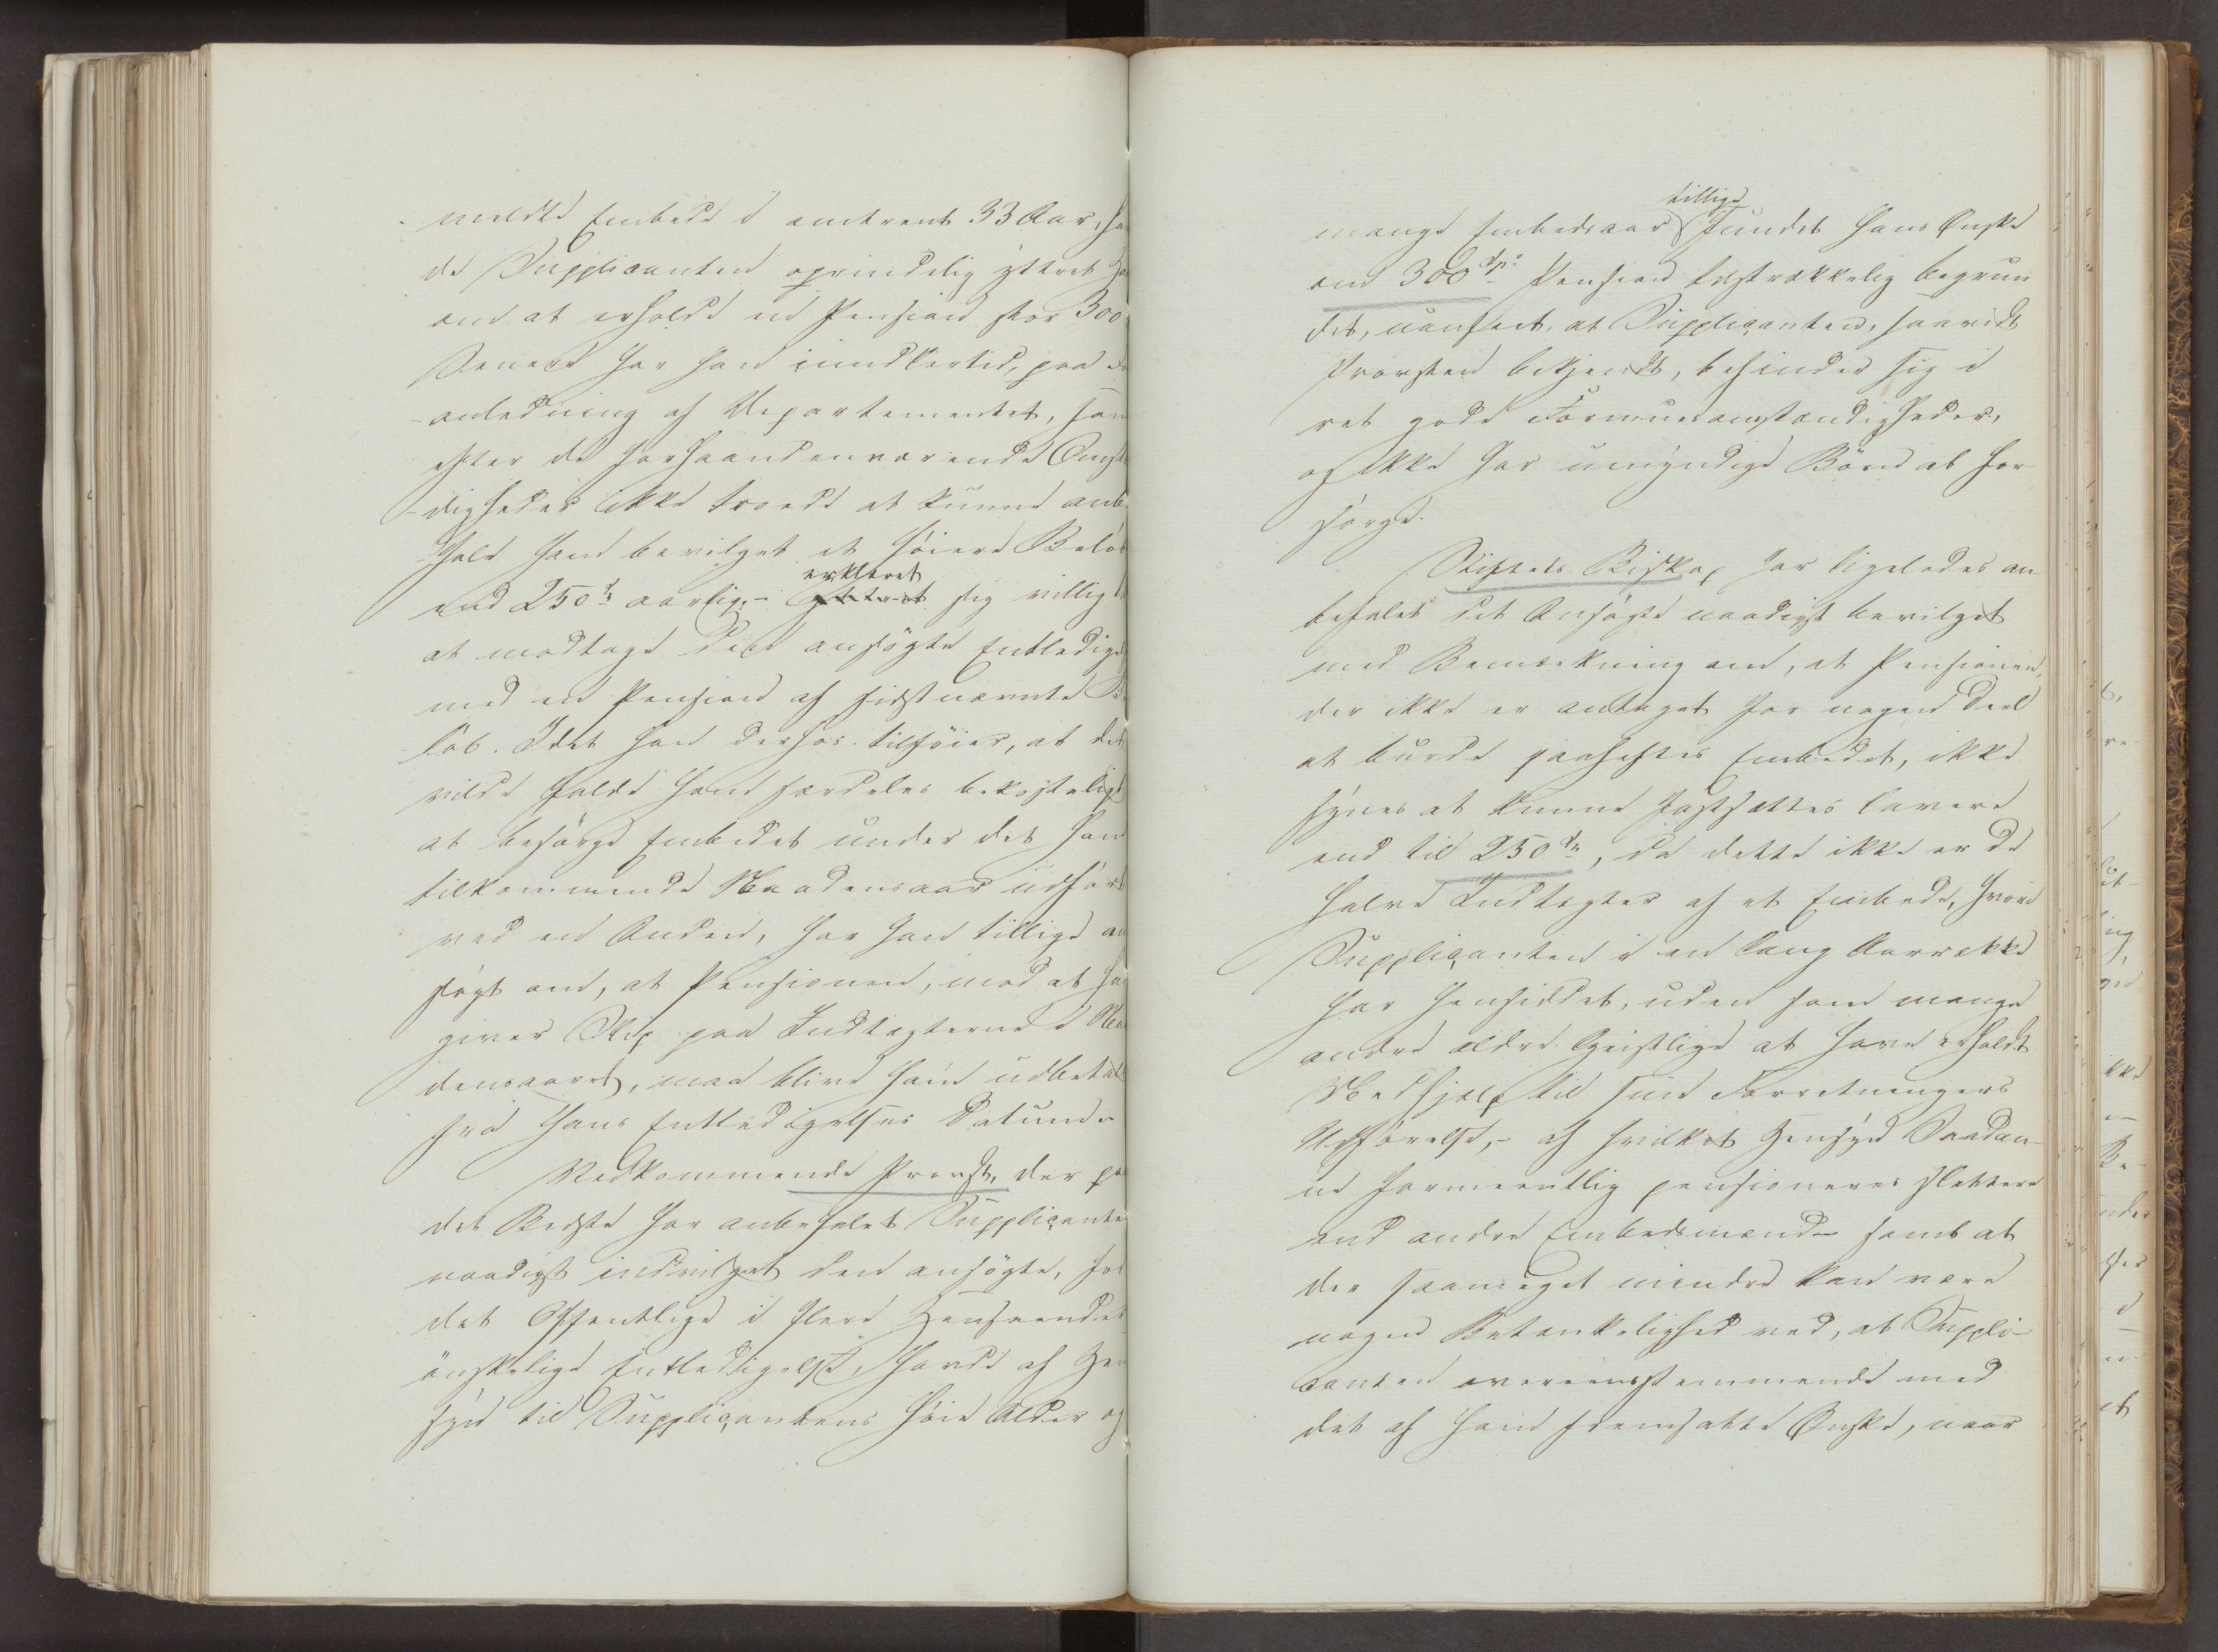 meldte Embede i omtrent 33 Aar, ha
de Supplicanten oprindelig yttret Ha
om at erholde en Pension stor 300
Senere har han imidlertid, paa
anledning af Departementet, som
efter de forhaandenværende Omst
digheder ikke troede at kunne anb
hold ham bevilget et høiere Beløb
erklæret
end 250 aarlig, - yttret sig villig
at modtage den ansøgte Entledige
med en Pension af sidstnævnte B
løb. Idet han derhos tilføier, at det
vilde falde ham særdeles bekosteligt
at besørge Embedet under det ham
tilkommende Naadensaar udført
ved en Anden, har han tillige an
søgt om, at Pensionen, mod at ha
giver Slip paa Indtægterne i Na
densaaret, maa blive ham udbetalt
fra hans Entledigelses Datum. -
Vedkommende Provst, der pa
det Bedste har anbefalet Supplicante
naadigst indvilget den ansøgte, for
det Offentlige i flere Henseender
ønskelige Entledigelse, havde af Hen
syn til Supplicantens høie Alder og
tillige
mange Embedsaar fundet hans Ønske
om 300 Pension tilstrækkelig begrun
det, uanseet at Supplicanten, saavidt
Provsten bekjendt, befinder sig i
ret gode Formuesomstændigheder,
og ikke har umyndige Børn at for
sørge.
Stiftets Biskop har ligeledes an
befalet det Ansøgte naadigst bevilget
med Bemærkning om, at Pensionen,
der ikke er antaget for nogen Deel
at burde paaheftes Embedet, ikke
synes at kunne fastsættes lavere
end til 250, da dette ikke er de
halve Indtægter af et Embede, hvori
Supplicanten i en lang Aarrække
har hensiddet, uden som mange
andre ældre Geistlige at have erholdt
Medhjælp til sine Forretningers
Udførelse, - af hvilket Hensyn Saadan
ne formeentlig pensioneres slettere
end andre Embedsmænd - samt at
der saameget mindre kan være
nogen Betænkelighed ved, at Suppli-
canten overeensstemmende med
det af ham fremsatte Ønske, naar